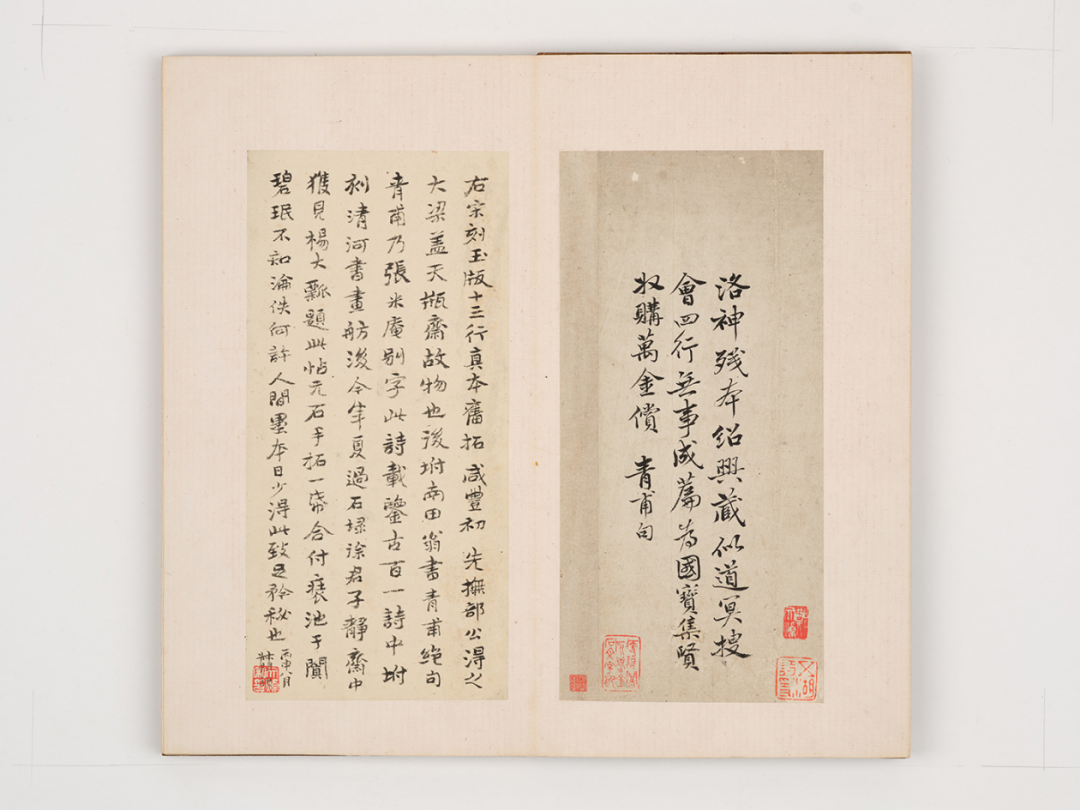 洛神殘本紹興藏似道冥搜
會四行無事成篇為國寶集賢
收購萬金償 青甫句
右宋刻玉版十三行真本舊拓咸豐初 先撫部公得之
大梁蓋天瓶齋故物也後坿南田翁書青甫絕句
青甫乃張米庵別字此詩載鑒古百一詩中坿
刻清河書畫舫後今年夏過石埭徐君子靜齋中
獲見楊大瓢題此帖元石手拓一帋合付裝池于閶
碧珉不知淪佚何許人間墨本日少得此致足矜秘也
丙申八月